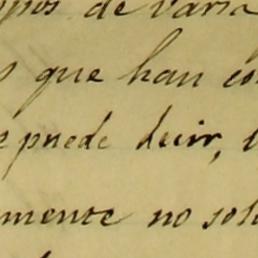 de varia
que han co
puede decir,
mente no sol